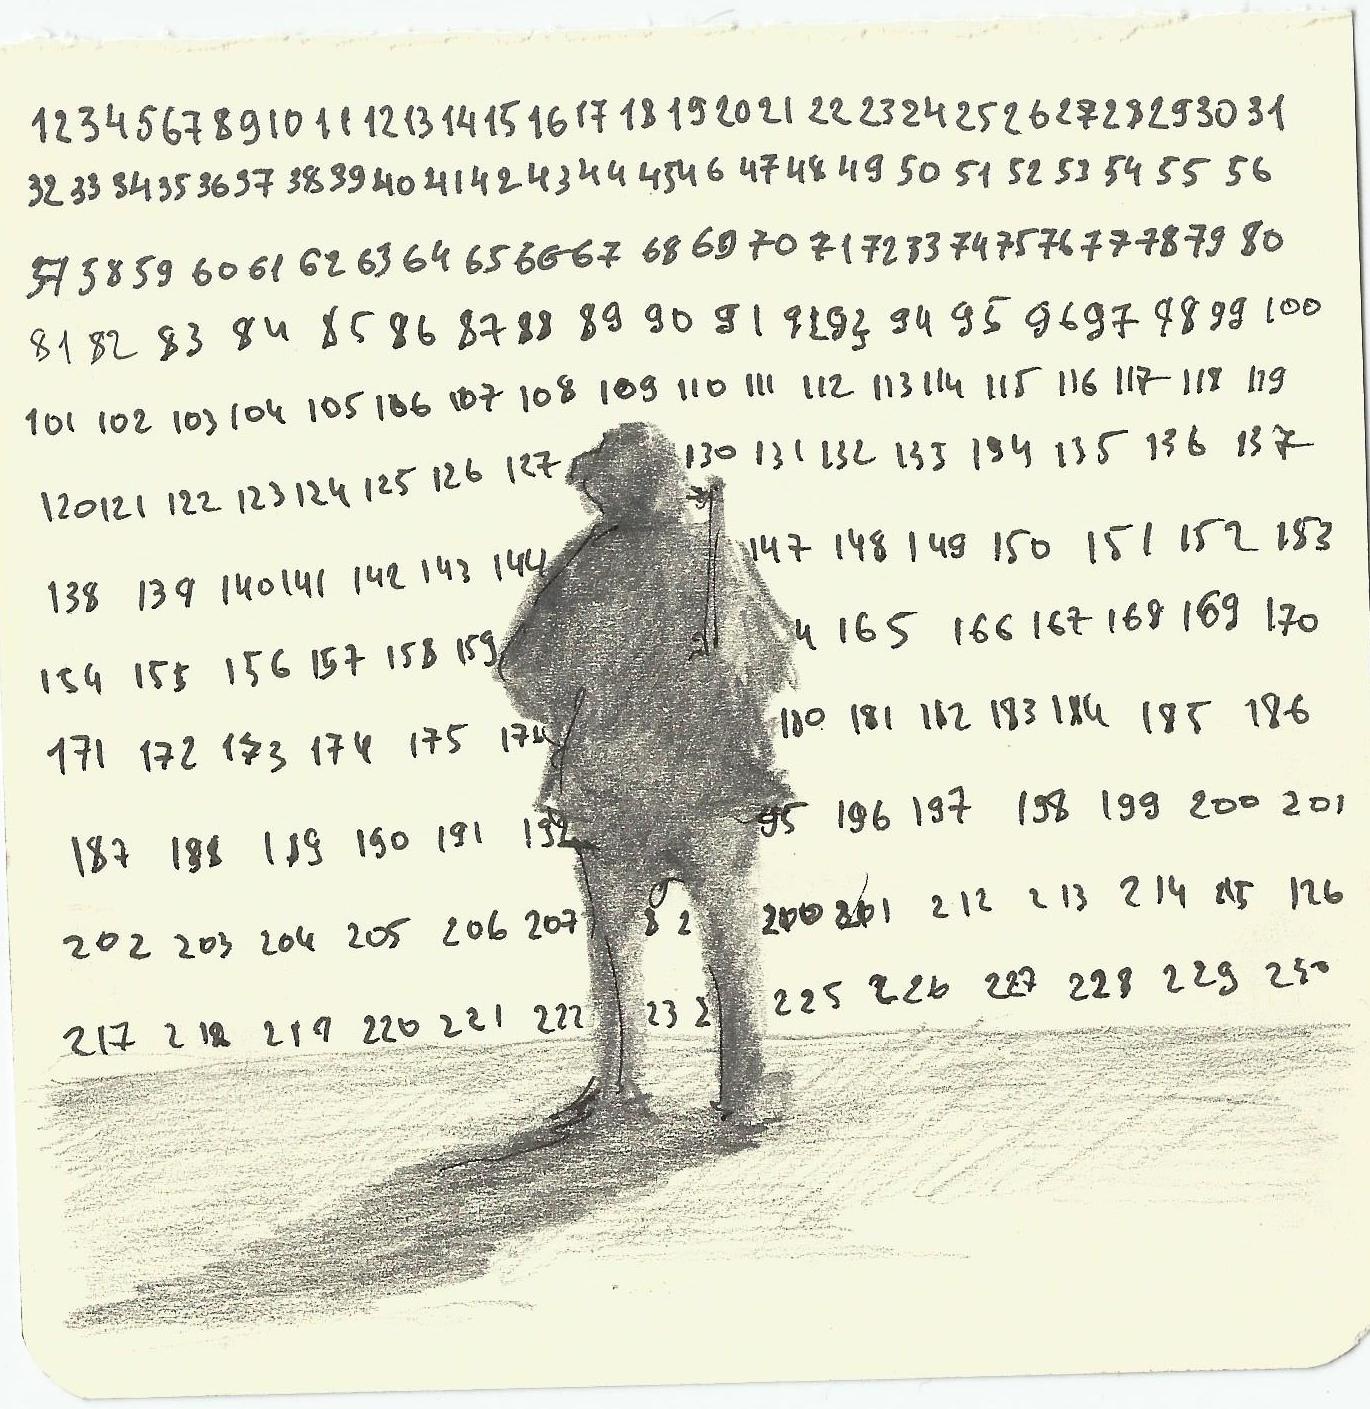 1 2 3 4 5 6 7 8 9 10 11 12 13 14 15 16 17 18 19 20 21 22 23 24 25 26 27 28 29 30 31
32 33 34 35 36 37 38 39 40 41 42 43 44 45 46 47 48 49 50 51 52 53 54 55 56
57 58 59 60 61 62 63 64 65 66 67 68 69 70 71 72 33 74 75 76 77 78 79 80
81 82 83 84 85 86 87 88 89 90 91 92 93 94 95 96 97 98 99 100
101 102 103 104 105 106 107 108 109 110 111 112 113 114 115 116 117 118 119
120 121 122 123 124 125 126 127 130 131 132 133 134 135 136 137
138 139 140 141 142 143 144 147 148 149 150 151 152 153
154 155 156 157 158 159 4 165 166 167 168 169 170
171 172 173 174 175 180 181 182 183 184 185 186
187 188 189 190 191 192 95 196 197 198 199 200 201
202 203 204 205 206 207 8 2 200 201 212 213 214 215 126
217 218 219 220 221 222 23 2 225 226 227 228 229 230